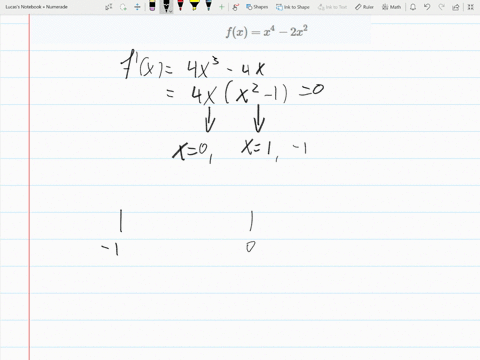 Lucas's Notebook » Numerade
Eraser
Ink to Shape
Ink to Text
Ruler
f(x) = x⁴ − 2x²
f'(x) = 4x³ − 4x
= 4x (x² − 1) = 0
x=0, x=1, -1
-1 0